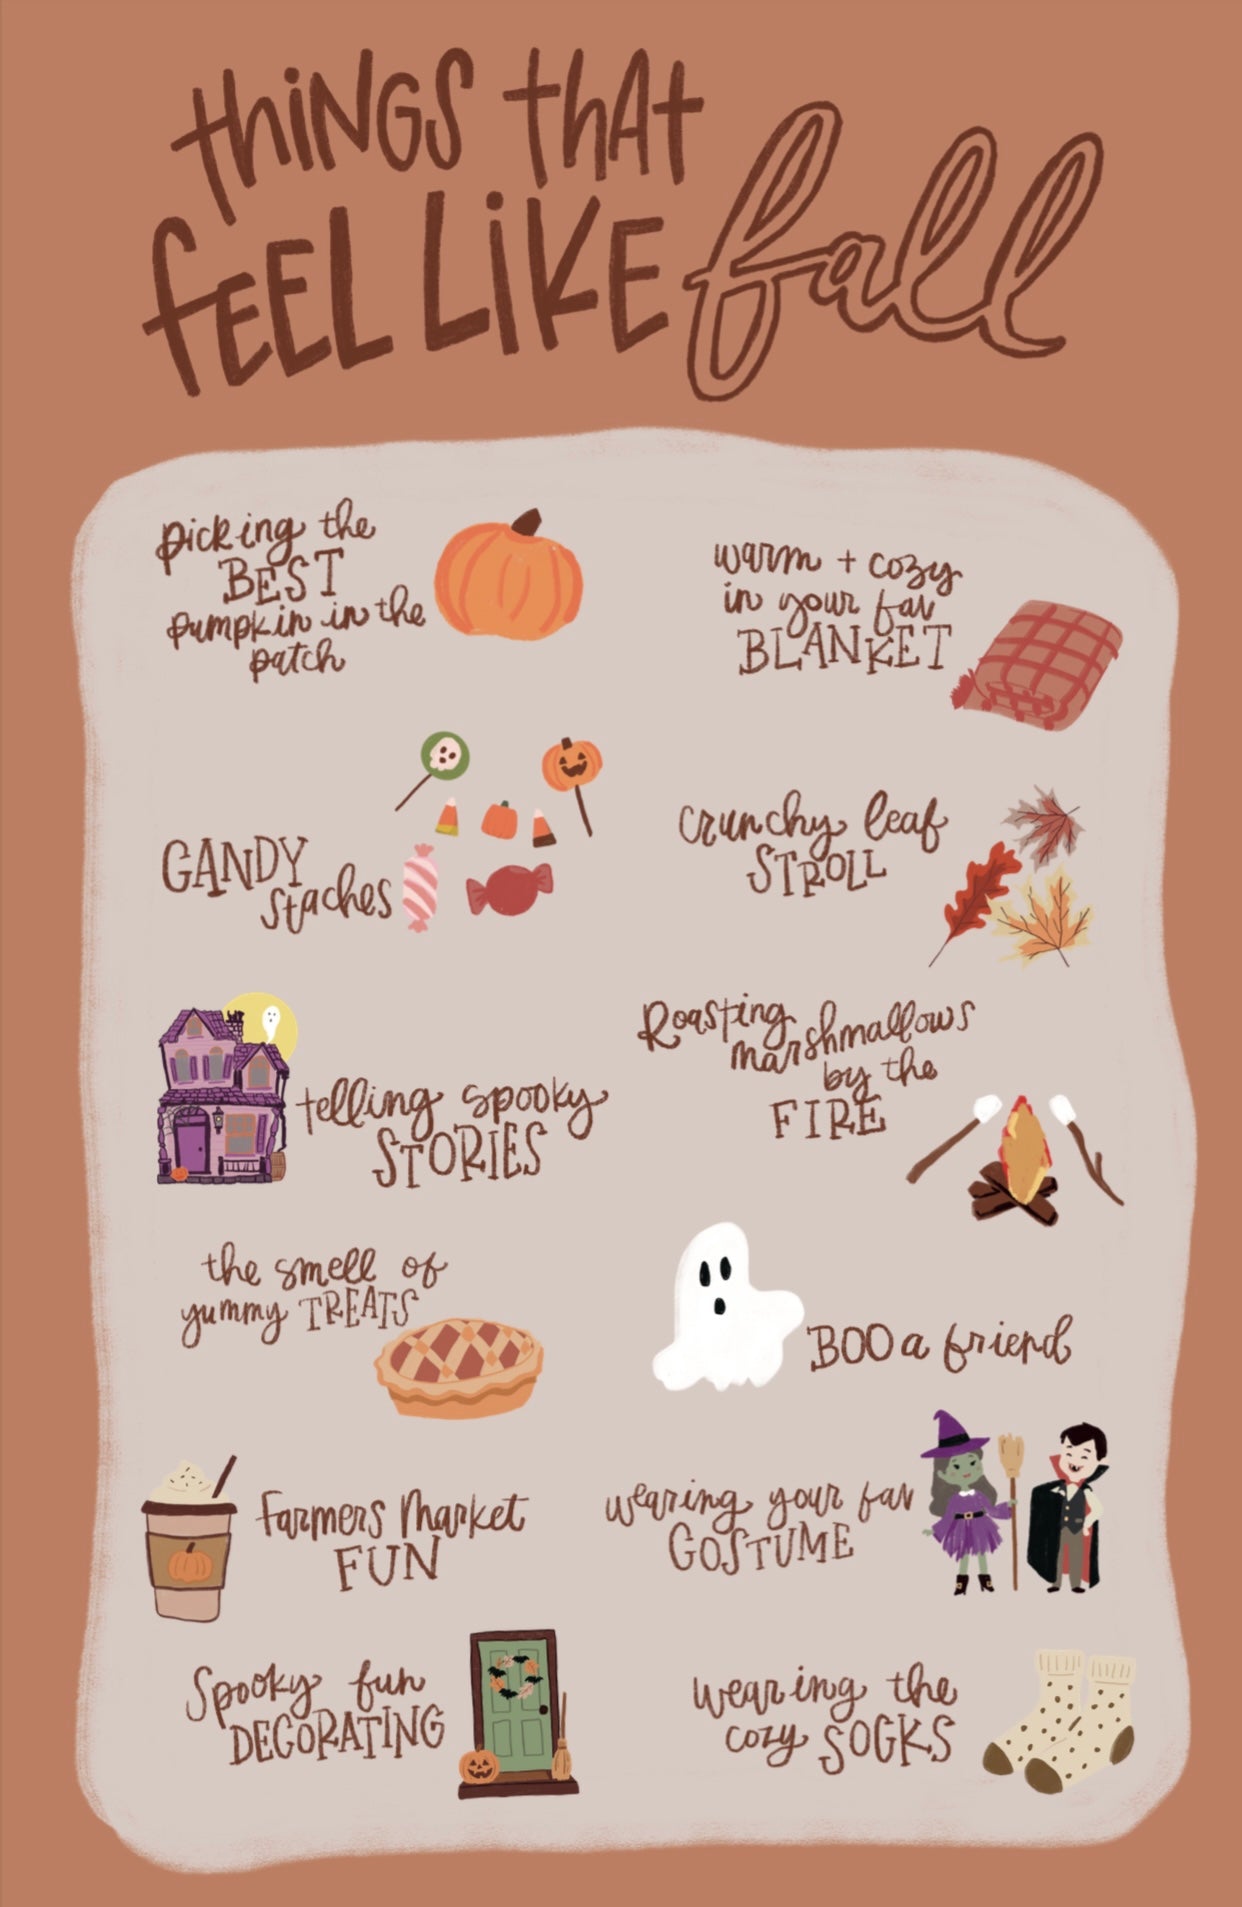 thiNGS thAt
fEEL LiKE fall
picking the
BEST
pumpkin in the
patch
warm + cozy
in your fav
BLANKET
CANDY
staches
crunchy leaf
STROLL
telling spooky
STORIES
Roasting
marshmallows
by the
FIRE
the smell of
yummy TREATS
BOO a friend
Farmers Market
FUN
wearing your fav
COSTUME
Spooky fun
DECORATING
wearing the
cozy SOCKS